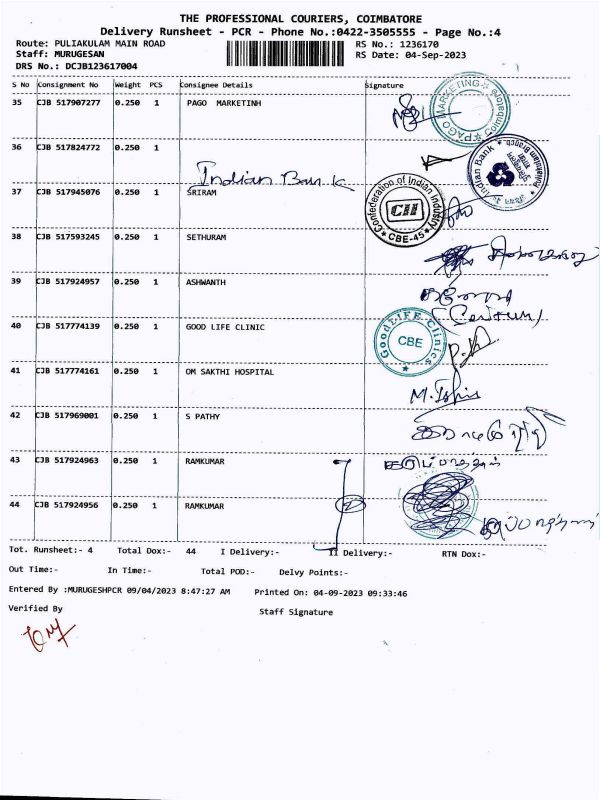 THE PROFESSIONAL COURIERS, COIMBATORE
Delivery Runsheet - PCR - Phone No.:0422-3505555 - Page No.:4
Route: PULIAKULAM MAIN ROAD
RS No.: 1236170
Staff: MURUGESAN
RS Date: 04-Sep-2023
DRS No.: DCJB123617004
S No Consignment No Weight PCS Consignee Details Signature
35 CJB 517907277 0.250 1 PAGO MARKETINH
PAGO MARKETING Coimbatore
36 CJB 517824772 0.250 1
Indian Bank
Indian Bank Puliakulam Branch
37 CJB 517945076 0.250 1 SRIRAM
Confederation of Indian Industry
CII
CBE-45
38 CJB 517593245 0.250 1 SETHURAM
39 CJB 517924957 0.250 1 ASHWANTH
40 CJB 517774139 0.250 1 GOOD LIFE CLINIC
GoodLIFE Clinics
CBE
41 CJB 517774161 0.250 1 OM SAKTHI HOSPITAL
42 CJB 517969001 0.250 1 S PATHY
43 CJB 517924963 0.250 1 RAMKUMAR
44 CJB 517924956 0.250 1 RAMKUMAR
Tot. Runsheet:- 4 Total Dox:- 44 I Delivery:- II Delivery:- RTN Dox:-
Out Time:- In Time:- Total POD:- Delvy Points:-
Entered By :MURUGESHPCR 09/04/2023 8:47:27 AM Printed On: 04-09-2023 09:33:46
Verified By Staff Signature